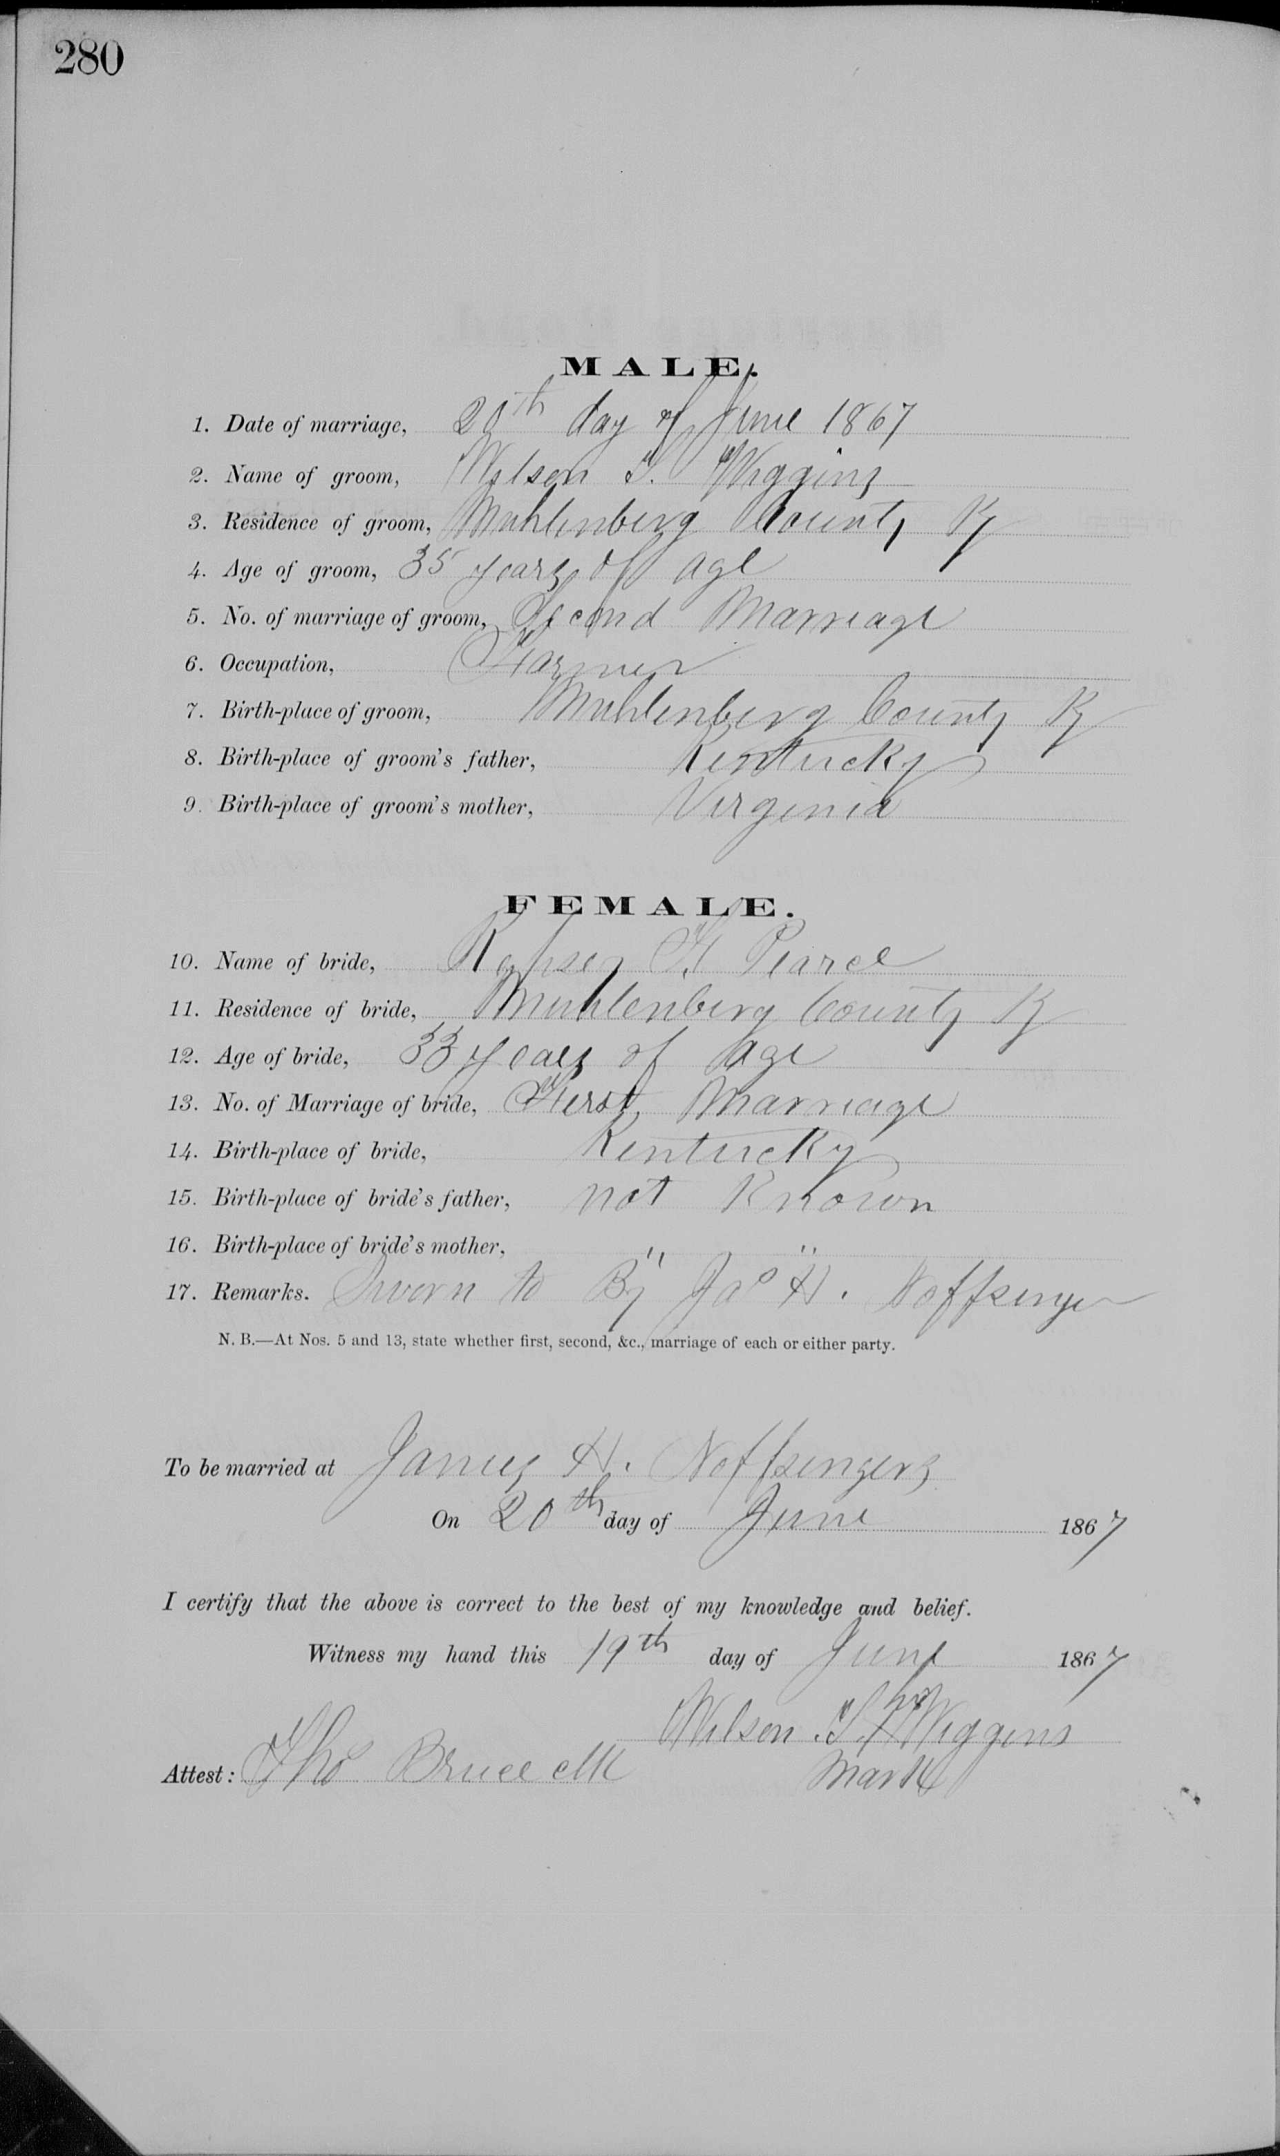 280
MALE.
1. Date of marriage, 20th day of June 1867
2. Name of groom, Wilson T. Wiggins
3. Residence of groom, Muhlenberg County Ky
4. Age of groom, 35 years of age
5. No. of marriage of groom, Second Marriage
6. Occupation, Farmer
7. Birth-place of groom, Muhlenberg County Ky
8. Birth-place of groom's father, Kentucky
9. Birth-place of groom's mother, Virginia
FEMALE.
10. Name of bride, Pearce
11. Residence of bride, Muhlenberg County Ky
12. Age of bride, 33 years of age
13. No. of Marriage of bride, First Marriage
14. Birth-place of bride, Kentucky
15. Birth-place of bride's father, not Known
16. Birth-place of bride's mother, " "
17. Remarks. Sworn to By Jas H. Noffsinger
N. B.—At Nos. 5 and 13, state whether first, second, &c., marriage of each or either party.
To be married at James H. Noffsingers
On 20th day of June 1867
I certify that the above is correct to the best of my knowledge and belief.
Witness my hand this 19th day of June 1867
Wilson T. X Wiggins
Attest: Tho Bruce clk mark